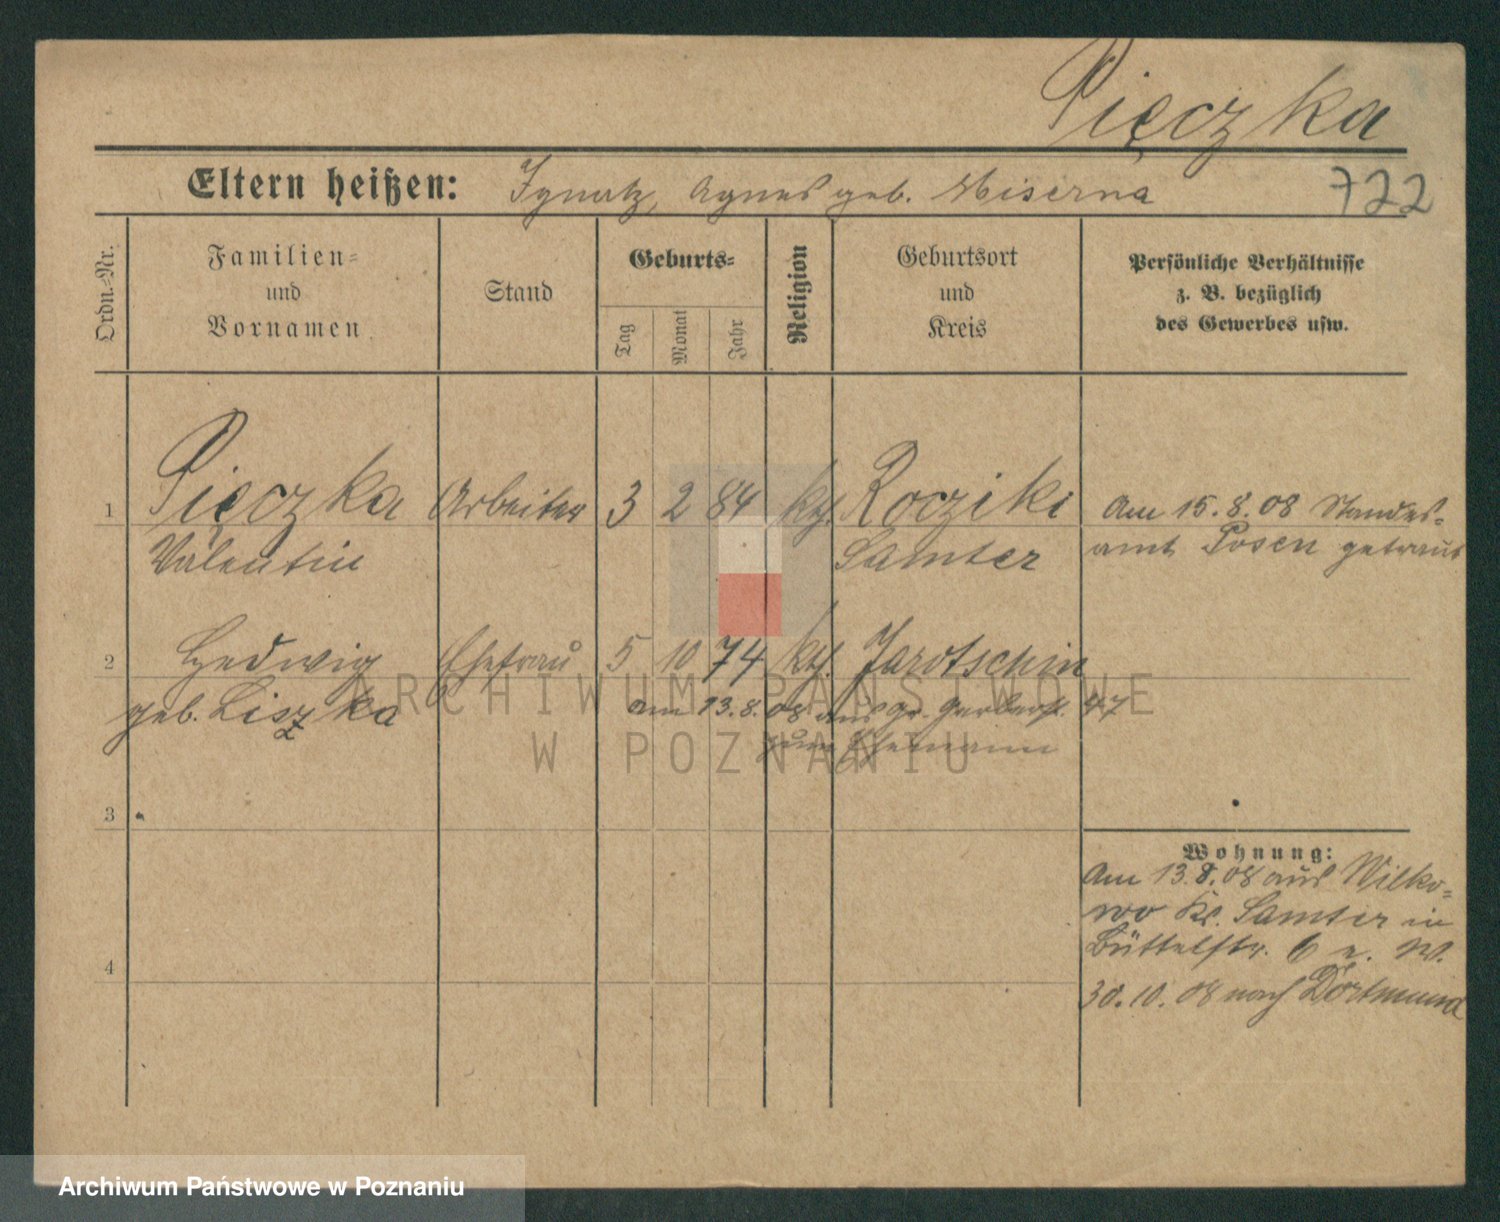 Pięczka
Eltern heißen: Ignatz, Agnes geb. Miserna
722
Ordn.-Nr.
Familien-
und
Vornamen
Stand
Geburts-
Tag
Monat
Jahr
Religion
Geburtsort
und
Kreis
Persönliche Verhältnisse
z. B. bezüglich
des Gewerbes usw.
1 Pięczka Arbeiter 3 2 84 kth. Rocziki Am 15.8.08 Standes-
Valentin Samter amt Posen getraut
2 Hedwig Ehefrau 5 10 74 kth. Jarotschin
geb. Liszka am 13.8.08 aus Gr. Gerberstr. 47
zum Ehemann
3
4
Wohnung:
Am 13.8.08 aus Wilko-
wo Kr. Samter in
Büttelstr. 6 e. W.
30.10.08 nach Dortmund
ARCHIWUM PAŃSTWOWE
W POZNANIU
Archiwum Państwowe w Poznaniu